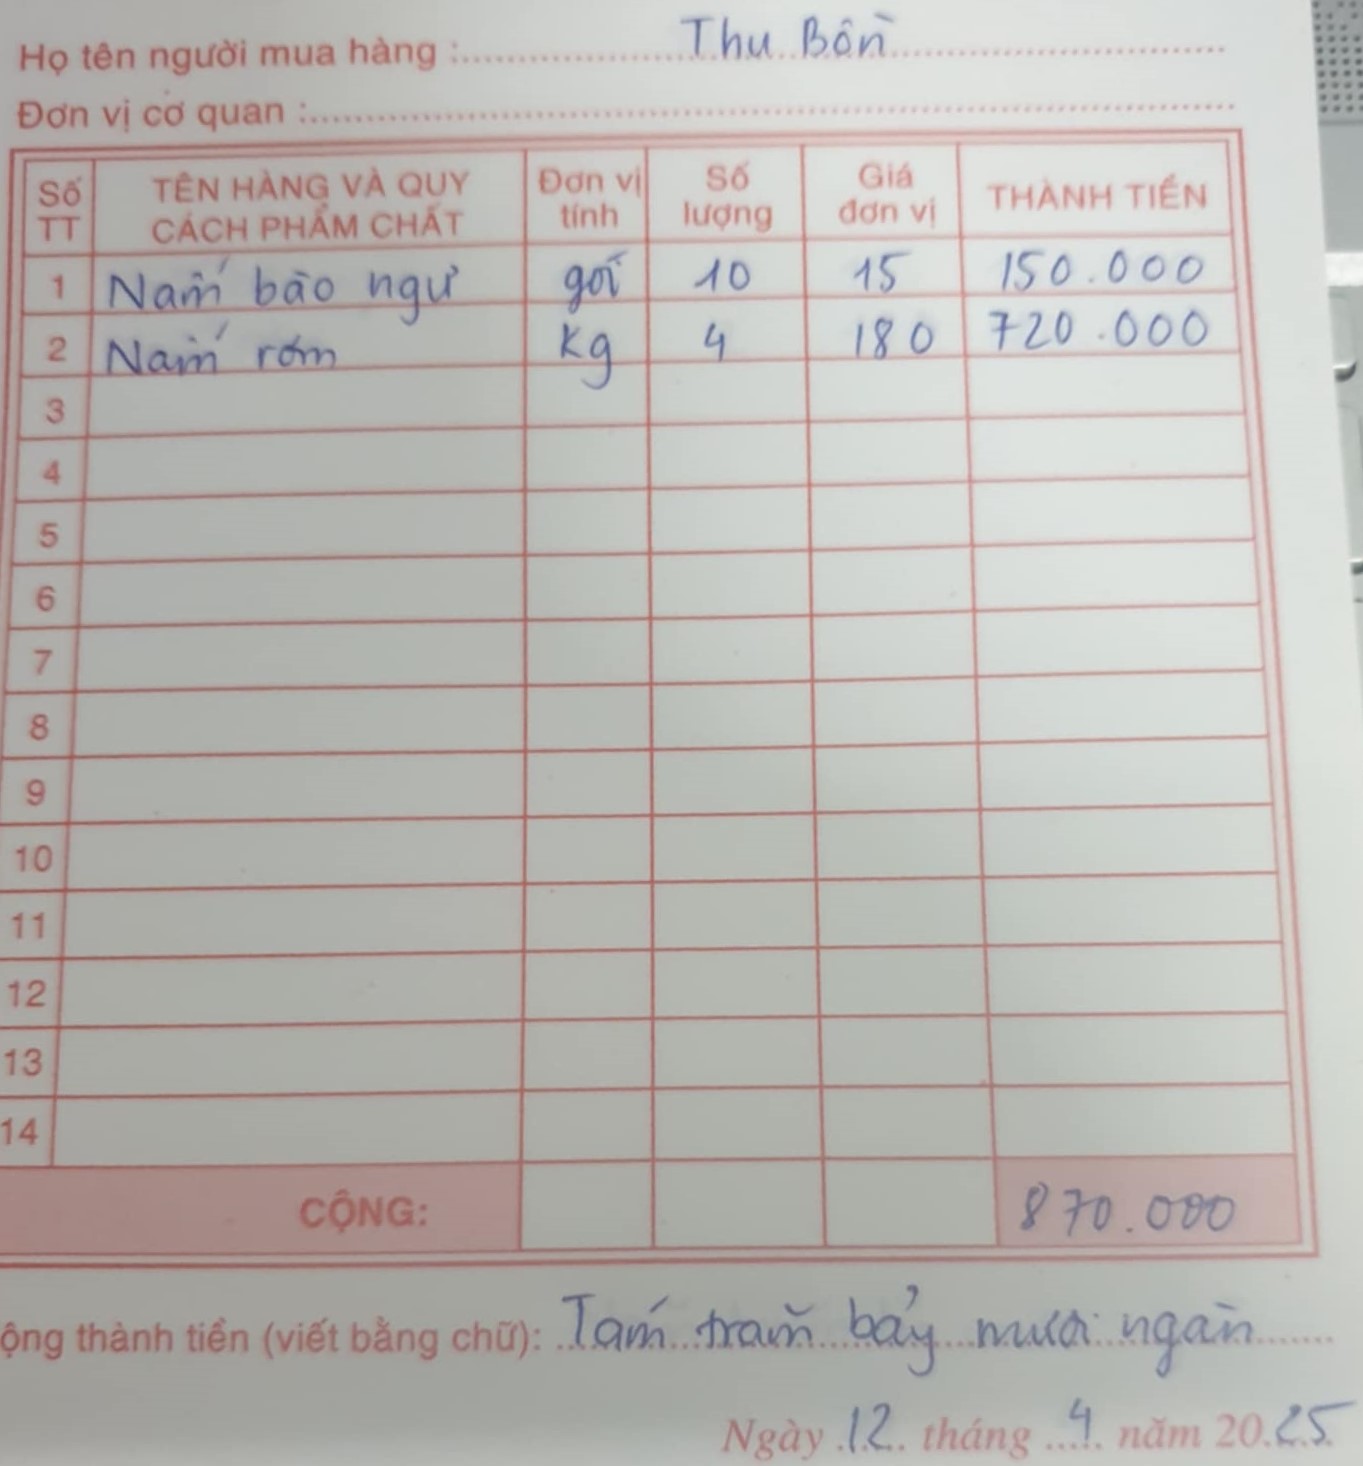 Họ tên người mua hàng : Thu Bồn
Đơn vị cơ quan :
Số TT TÊN HÀNG VÀ QUY CÁCH PHẨM CHẤT Đơn vị tính Số lượng Giá đơn vị THÀNH TIỀN
1 Nấm bào ngư gói 10 15 150.000
2 Nấm rơm Kg 4 180 720.000
3
4
5
6
7
8
9
10
11
12
13
14
CỘNG: 870.000
ộng thành tiền (viết bằng chữ): Tám trăm bảy mươi ngàn
Ngày 12 tháng 4 năm 2025